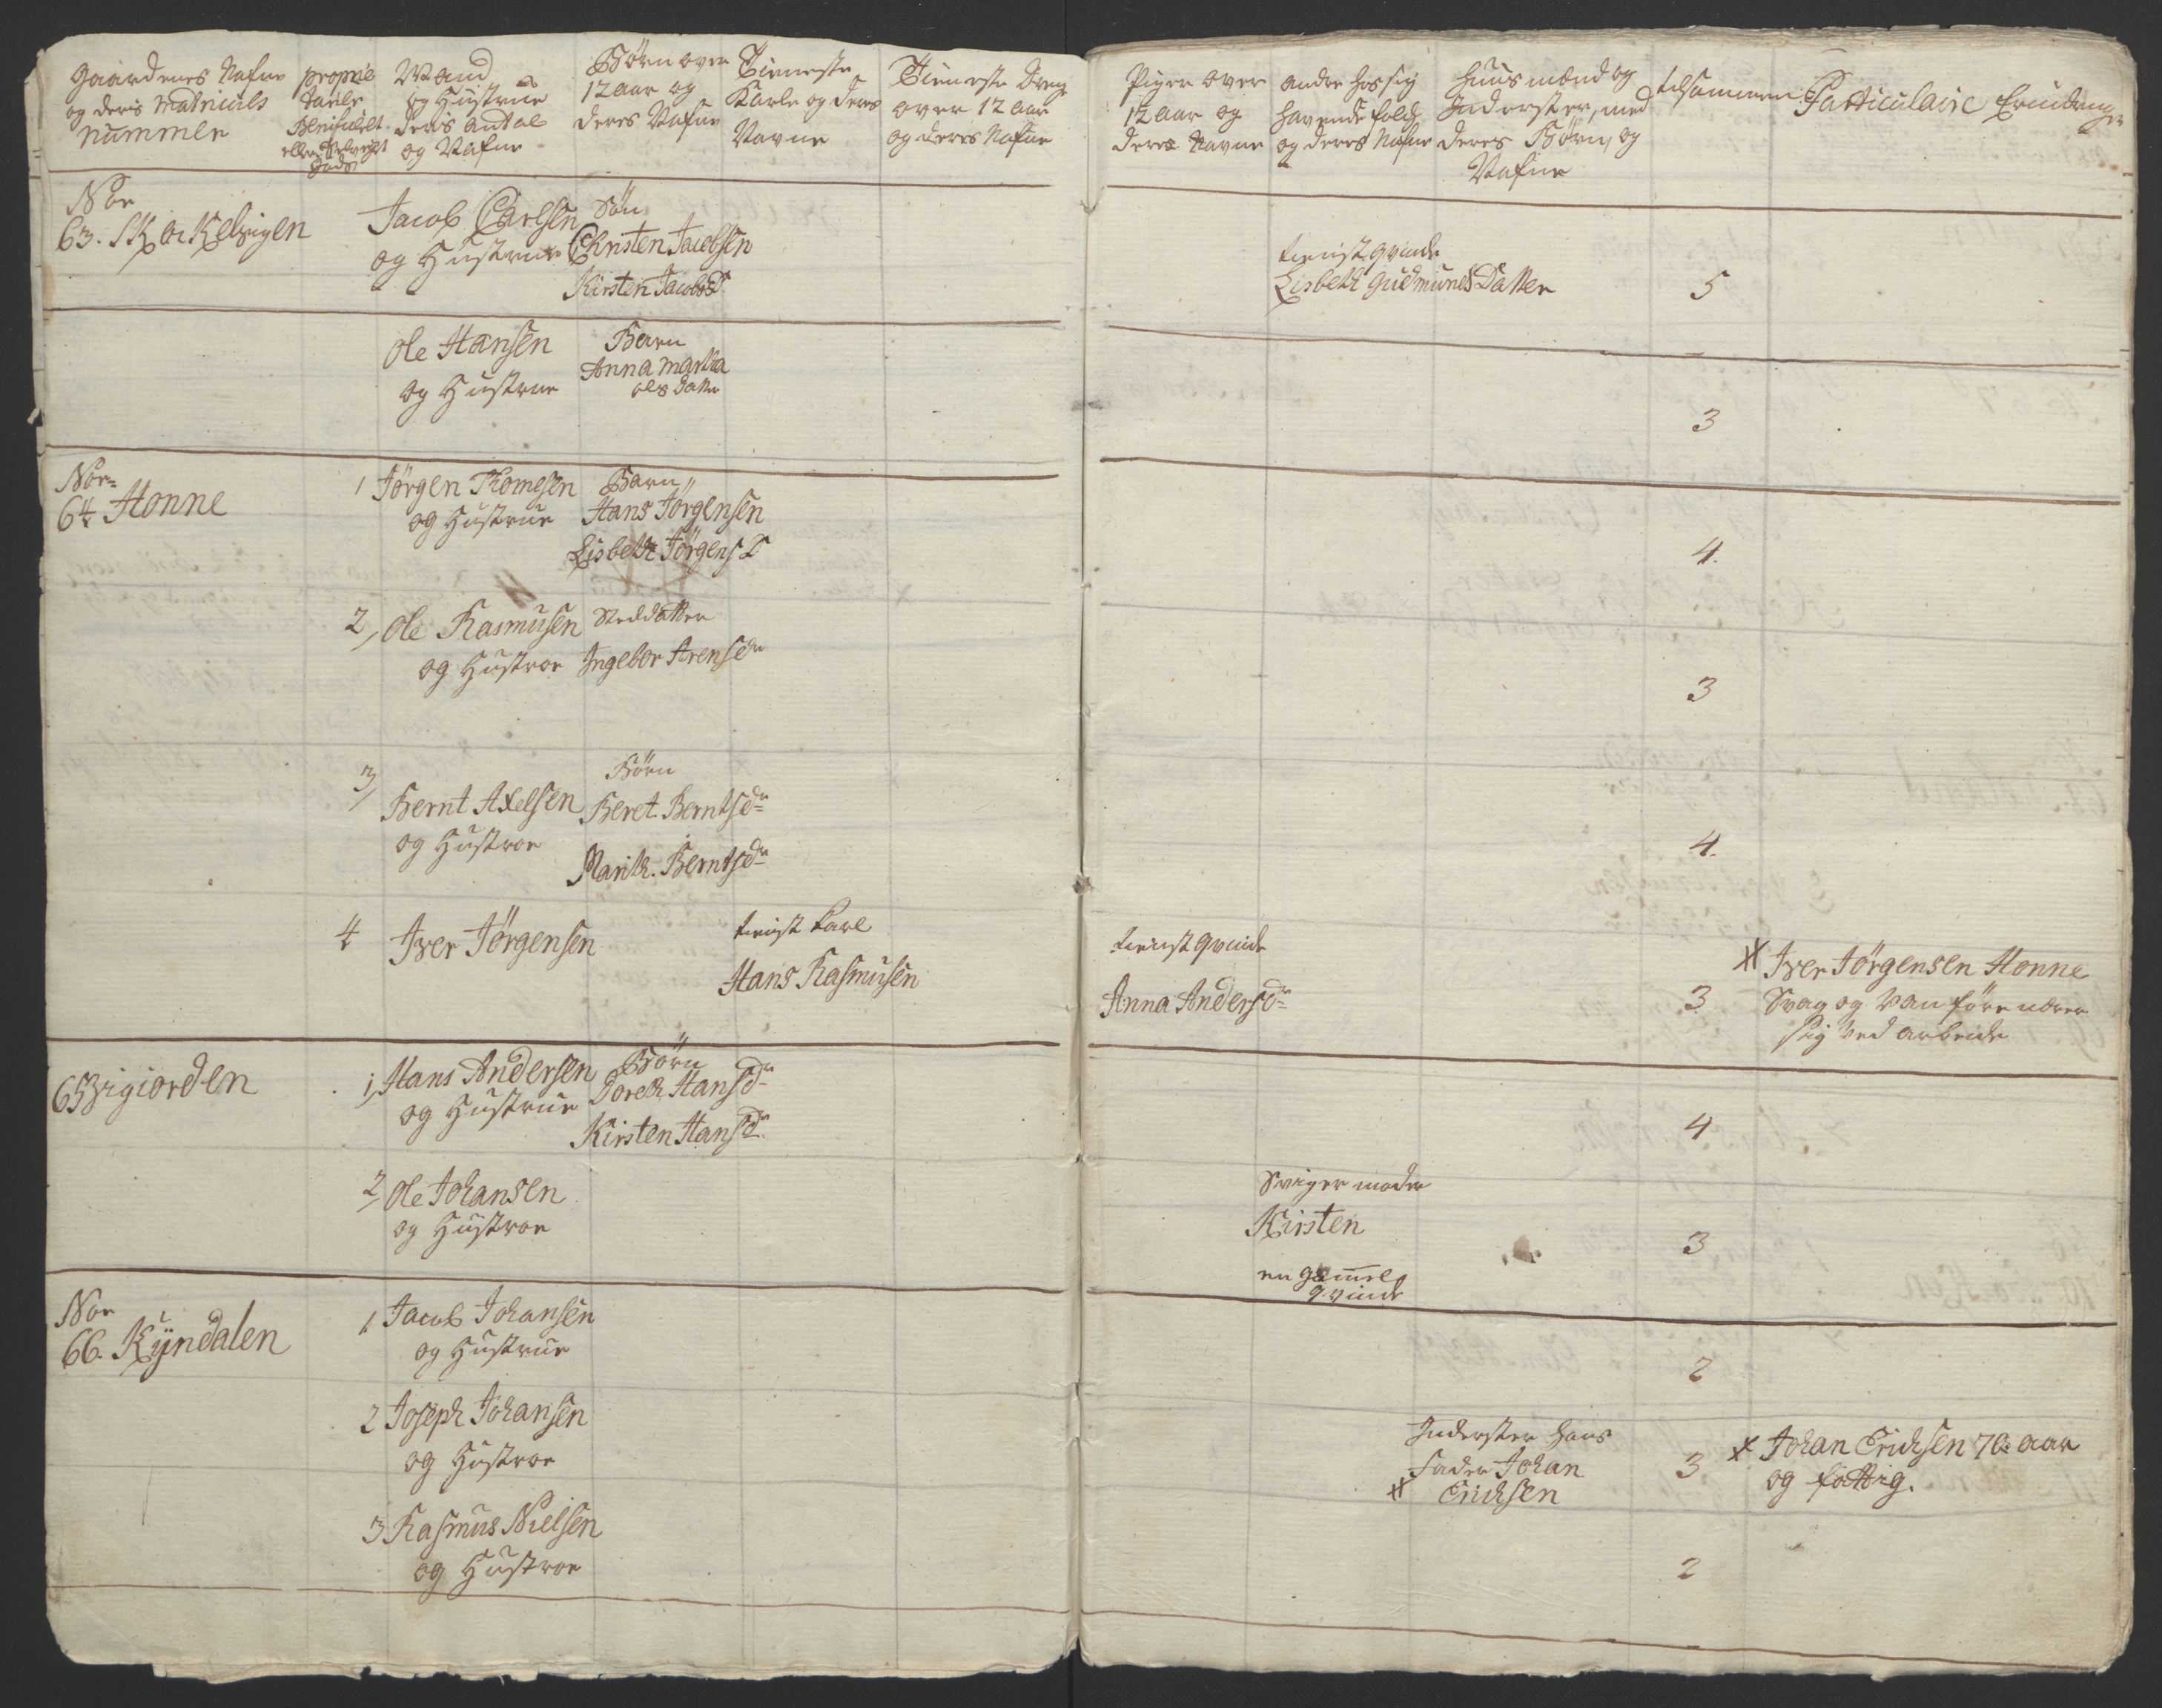 Gaardenes Nafne
og deris Matriculs
Nummer
proprie
taire
Beneficeret
eller Selveyer
Gods
Mand
og Hustrue
deris antal
og Nafne
Børn over
12 aar og
deres Nafne
Tieneste
Karle og deres
Navne
Tieneste Dreng
over 12 aar
og deres Nafne
Piger over
12 aar og
deres Navne
andre hos sig
havende folch
og deres Nafne
Huusmænd og
Inderster, med
deres Børn, og
Nafne
tilsammen
Particulaire Erindringer
Nor
63. Skarkelzigen
Jacob Carlsen
og Hustrue
Søn
Christen Jacobsen
Kirsten JacobsD
tienistqvinde
Lisbeth GudmundsDatter
5
Ole Hansen
og Hustrue
Barn
Anna Martha
Ols Datter
3
Nor=
64 Honne
1 Jørgen Thomesen
og Hustrue
Barn
Hans Jørgensen
Lisbeth JørgensD
4.
2, Ole Rasmusen
og Hustroe
Steddatter
Ingebor Arensdr
3
3,
Bernt Axelsen
og Hustroe
Børn
Beret. Berntsdr
Marith. Berntsdr
4.
4 Iver Jørgensen
tienist Karl
Hans Rasmusen
tienistqvinde
Anna Andersdr
3
# Iver Jørgensen Honne
Svag og vanføre nærer
sig ved arbeide
65 Vigiorden
1, Hans Andersen
og Hustrue
Børn
Doreth Hansdr
Kirsten Hansdr
4
2, Ole Johansen
og Hustroe
Sviger moder
Kirsten
en gammel
qvinde
3
Nor
66. Kÿndalen
1, Jacob Johansen
og Hustrue
2
2 Joseph Johansen
og Hustroe
Inderster hans
Fader Johan
# Erichsen
3
# Johan Erichsen 70: aar
og fattig.
3 Rasmus Nielsen
og Hustroe
2